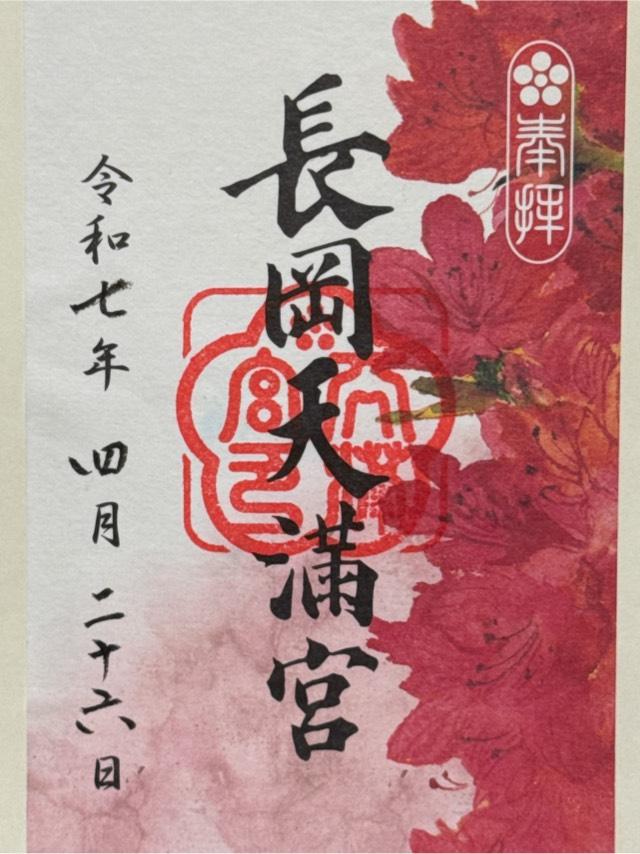 奉拝
長岡天満宮
令和七年 四月 二十六日